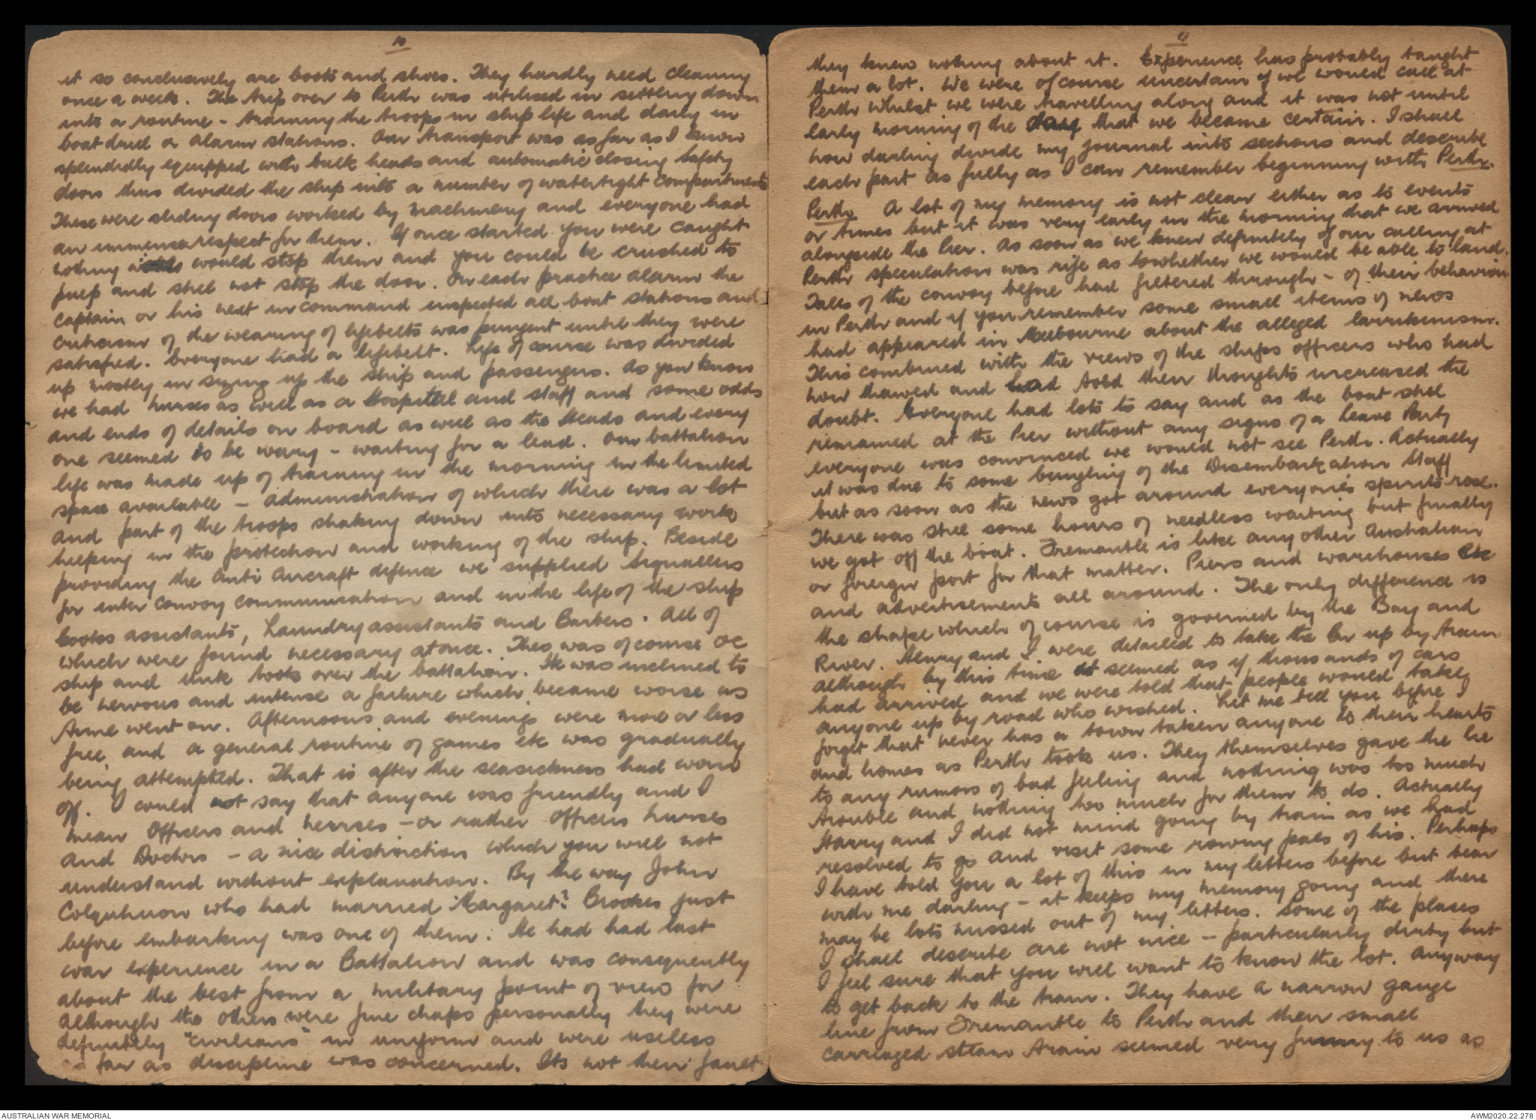 10
it so conclusively are boots and shoes. They hardly need cleaning
once a week. The trip over to Perth was utilised in settling down
into a routine - training the troops in ship life and daily in
boat drill or alarm stations. Our transport was as far as I know
splendidly equipped with bulk heads and automatic closing safety
doors thus divided the ship into a number of watertight compartments
These were sliding doors worked by machinery and everyone had
an immense respect for them. If once started you were caught
nothing would stop them and you could be crushed to
pulp and still not stop the door. On each practice alarm the
Captain or his next in command inspected all boat stations and
criticism of the wearing of lifebelts was pungent until they were
satisfied. Everyone had a lifebelt. Life of course was divided
up mostly in sizing up the ship and passengers. As you know
we had nurses as well as a hospital and staff and some odds
and ends of details on board as well as the Heads and every
one seemed to be wary - waiting for a lead. Our battalion
life was made up of training in the morning in the limited
space available - administration of which there was a lot
and part of the troops shaking down into necessary work
helping in the protection and working of the ship. Beside
providing the Anti Aircraft defence we supplied signallers
for inter convoy communication and in the life of the ship
cooks assistants, Laundry assistants and Barbers. All of
which were found necessary at once. Theo was of course OC
ship and took over the battalion. He was inclined to
be nervous and intense a failure which became worse as
time went on. Afternoons and evenings were more or less
free, and a general routine of games etc was gradually
being attempted. That is after the seasickness had worn
off. I could not say that anyone was friendly and I
mean Officers and nurses - or rather Officers nurses
and Doctors - a nice distinction which you will not
understand without explanation. By the way John
Colquhuon who had married Margaret? Brookes just
before embarking was one of them. He had had last
war experience in a Battalion and was consequently
about the best from a military point of view for
although the others were fine chaps personally they were
definitely "civilians" in uniform and were useless
as far as discipline was concerned. Its not their fault
11
they knew nothing about it. Experience has probably taught
them a lot. We were of course uncertain if we would call at
Perth whilst we were travelling along and it was not until
early morning of the day that we became certain. I shall
now darling divide my journal into sections and describe
each part as fully as I can remember beginning with Perth.
Perth A lot of my memory is not clear either as to events
or times but it was very early in the morning that we arrived
alongside the Pier. As soon as we knew definitely of our calling at
Perth speculation was rife as to whether we would be able to land.
Tales of the convoy before had filtered through - of their behaviour
in Perth and if you remember some small items of news
had appeared in Melbourne about the alleged larrikinism.
This combined with the views of the ships officers who had
now thawed and had told their thoughts increased the
doubt. Everyone had lots to say and as the boat still
remained at the Pier without any signs of a Leave Party
everyone was convinced we would not see Perth. Actually
it was due to some bungling of the Disembarkation Staff
but as soon as the news got around everyone's spirits rose.
There was still some hours of needless waiting but finally
we got off the boat. Fremantle is like any other Australian
or foreign port for that matter. Piers and warehouses etc
and advertisements all around. The only difference is
the shape which of course is governed by the Bay and
River. Henry and I were detailed to take the Bn up by train
although by this time it seemed as if thousands of cars
had arrived and we were told that people would take
anyone up by road who wished. Let me tell you before I
forget that never has a town taken anyone to their hearts
and homes as Perth took us. They themselves gave the lie
to any rumors of bad feeling and nothing was too much
trouble and nothing too much for them to do. Actually
Harry and I did not mind going by train as we had
resolved to go and visit some rowing pals of his. Perhaps
I have told you a lot of this in my letters before but bear
with me darling - it keeps my memory going and there
may be lots missed out of my letters. Some of the places
I shall describe are not nice - particularly dirty but
I feel sure that you will want to know the lot. Anyway
to get back to the train. They have a narrow gauge
line from Fremantle to Perth and their small
carriaged steam train seemed very funny to us as
AUSTRALIAN WAR MEMORIAL
AWM2020.22.278